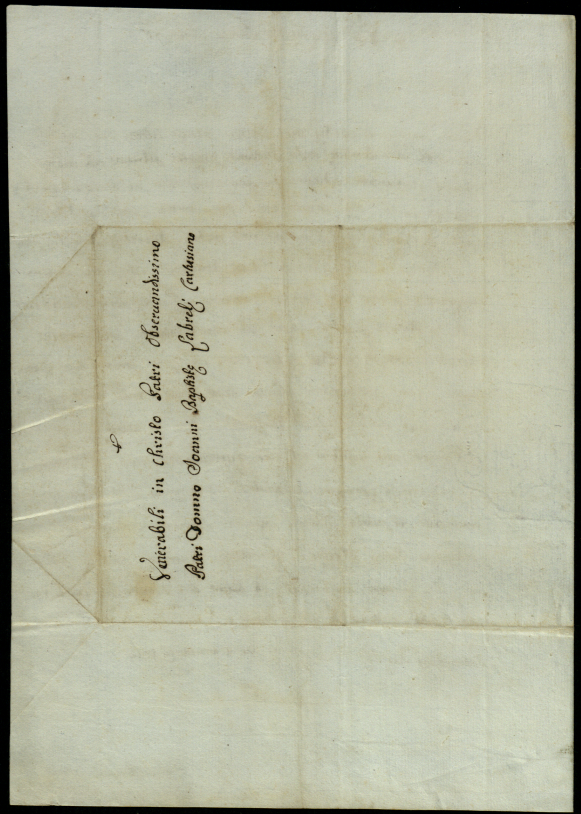 Venerabili in Christo Patri Observandissimo
Patri Domno Joanni Baptistę Cartusiano